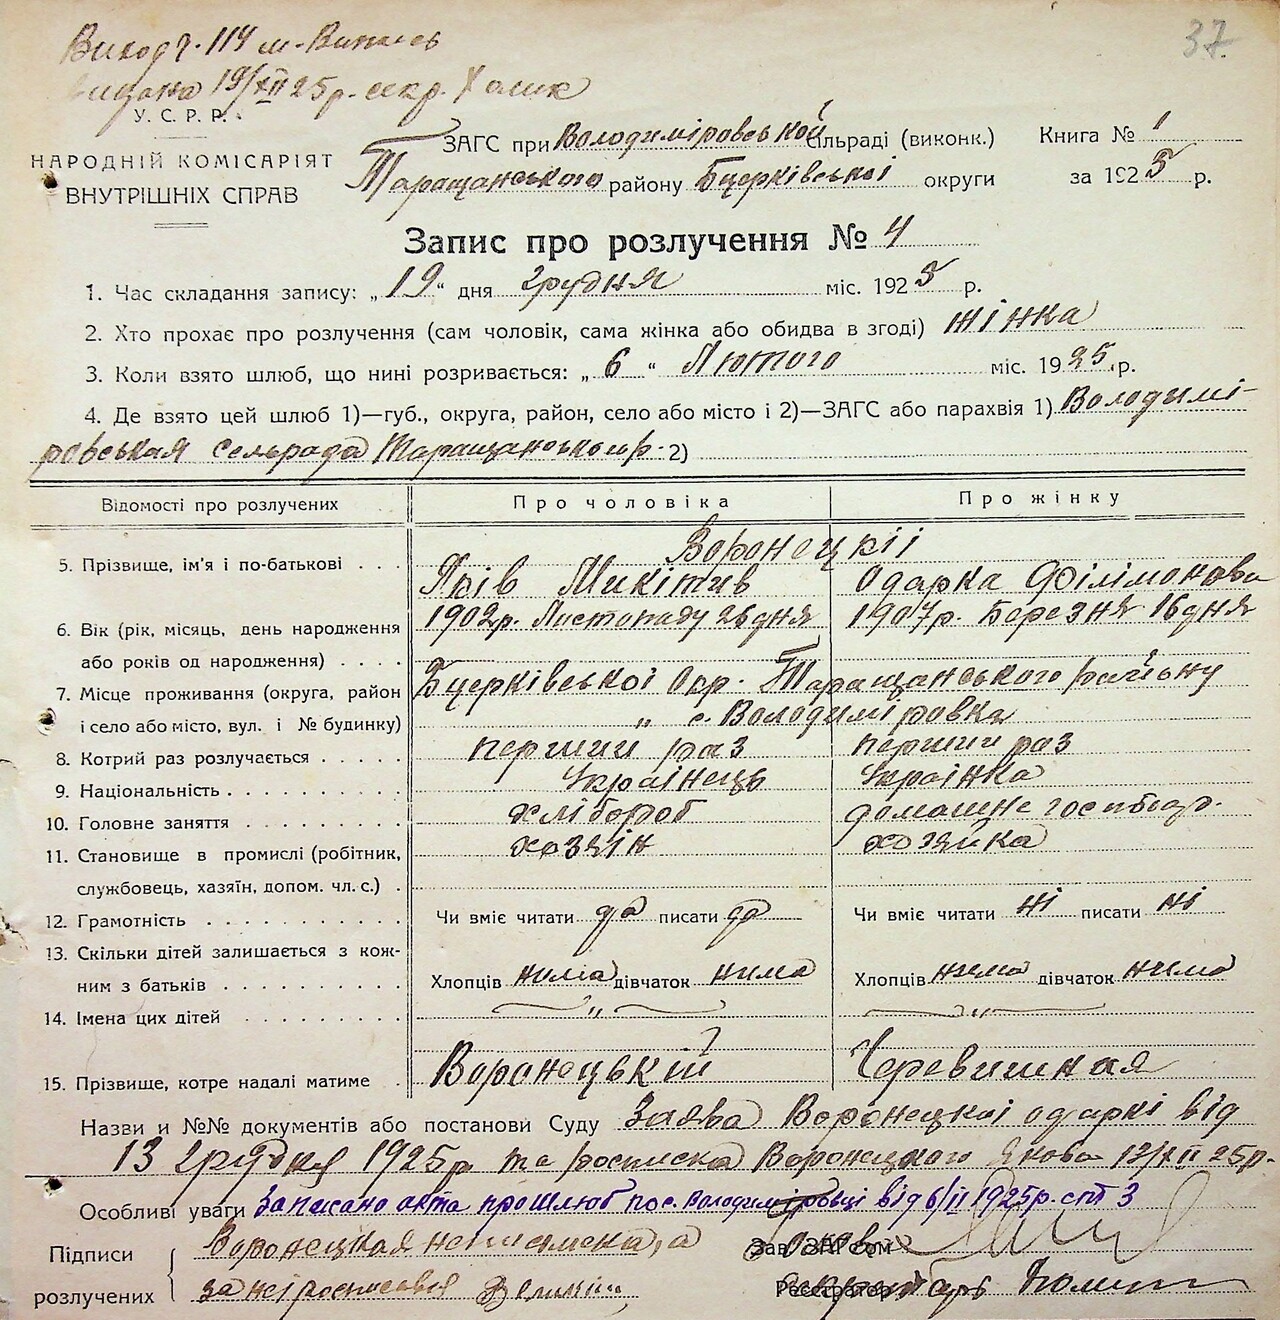 Виход г. 114 м. Випись
видана 19/XII 25 р. секр.
37.
У. С. Р. Р.
НАРОДНІЙ КОМІСАРІЯТ
ВНУТРІШНІХ СПРАВ
ЗАГС при Володиміровськой сільраді (виконк.) Книга № 1
Таращанського району Бцерківської округи за 1925 р.
Запис про розлучення № 4
1. Час складання запису: „19“ дня Грудня міс. 1925 р.
2. Хто прохає про розлучення (сам чоловік, сама жінка або обидва в згоді) жінка
3. Коли взято шлюб, що нині розривається: „6“ Лютого міс. 1925 р.
4. Де взято цей шлюб 1)—губ., округа, район, село або місто і 2)—ЗАГС або парахвія 1) Володимі-
ровськая сельрада Таращанського р. 2)
Відомості про розлучених Про чоловіка Про жінку
Воронецкіі
5. Прізвище, ім'я і по-батькові . . . Яків Микітив Одарка Філімонова
6. Вік (рік, місяць, день народження 1902 р. Листопаду 26 дня 1907 р. Березня 16 дня
або років од народження) . . . .
7. Місце проживання (округа, район Бцерківської Окр. Таращанського району
і село або місто, вул. і № будинку) „ с. Володиміровка
8. Котрий раз розлучається . . . . . перший раз перший раз
9. Національність . . . . . . . . . . Українець Українка
10. Головне заняття . . . . . . . . . хлібороб домашне господар.
11. Становище в промислі (робітник, хозяїн хозяйка
службовець, хазяїн, допом. чл. с.) .
12. Грамотність . . . . . . . . . . Чи вміє читати да писати да Чи вміє читати ні писати ні
13. Скільки дітей залишається з кож-
ним з батьків . . . . . . . . . . Хлопців нима дівчаток нима Хлопців нима дівчаток нима
14. Імена цих дітей . . . . . . . . . „ „
15. Прізвище, котре надалі матиме . . Воронецький Черевишная
Назви и №№ документів або постанови Суду Заява Воронецкоі одаркі від
13 грудня 1925 р та росписка Воронецкого Якова 12/XII 25 р.
Особливі уваги Записано акта про шлюб по с. Володиміровці від 6/II 1925 р. ст 3
Підписи Воронецкая неписьмена, а Зав. ЗАГСом
розлучених за неі росписався Реєстратор Секретарь